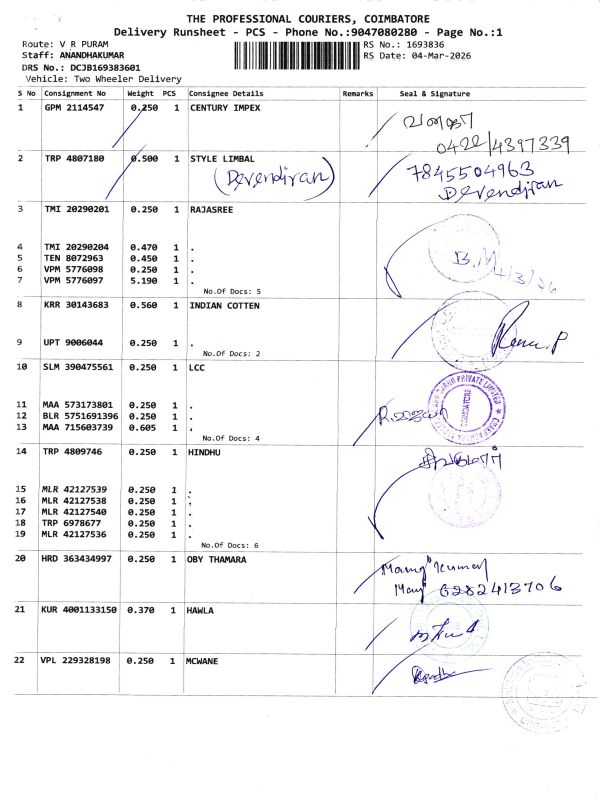 THE PROFESSIONAL COURIERS, COIMBATORE
Delivery Runsheet - PCS - Phone No.:9047080280 - Page No.:1
Route: V R PURAM
Staff: ANANDHAKUMAR
DRS No.: DCJB169383601
Vehicle: Two Wheeler Delivery
RS No.: 1693836
RS Date: 04-Mar-2026
S No Consignment No Weight PCS Consignee Details Remarks Seal & Signature
1 GPM 2114547 0.250 1 CENTURY IMPEX
0422/4397339
2 TRP 4807180 0.500 1 STYLE LIMBAL
(Devendiran)
7845504963
Devendiran
3 TMI 20290201 0.250 1 RAJASREE
4 TMI 20290204 0.470 1 .
5 TEN 8072963 0.450 1 .
6 VPM 5776098 0.250 1 .
7 VPM 5776097 5.190 1 .
No.Of Docs: 5
B.M
4/3/26
8 KRR 30143683 0.560 1 INDIAN COTTEN
9 UPT 9006044 0.250 1 .
No.Of Docs: 2
10 SLM 390475561 0.250 1 LCC
11 MAA 573173801 0.250 1 .
12 BLR 5751691396 0.250 1 .
13 MAA 715603739 0.605 1 .
No.Of Docs: 4
PRIVATE LIMITED
COIMBATORE
14 TRP 4809746 0.250 1 HINDHU
15 MLR 42127539 0.250 1 .
16 MLR 42127538 0.250 1 .
17 MLR 42127540 0.250 1 .
18 TRP 6978677 0.250 1 .
19 MLR 42127536 0.250 1 .
No.Of Docs: 6
20 HRD 363434997 0.250 1 OBY THAMARA
Kumar
6282413706
21 KUR 4001133150 0.370 1 HAWLA
22 VPL 229328198 0.250 1 MCWANE